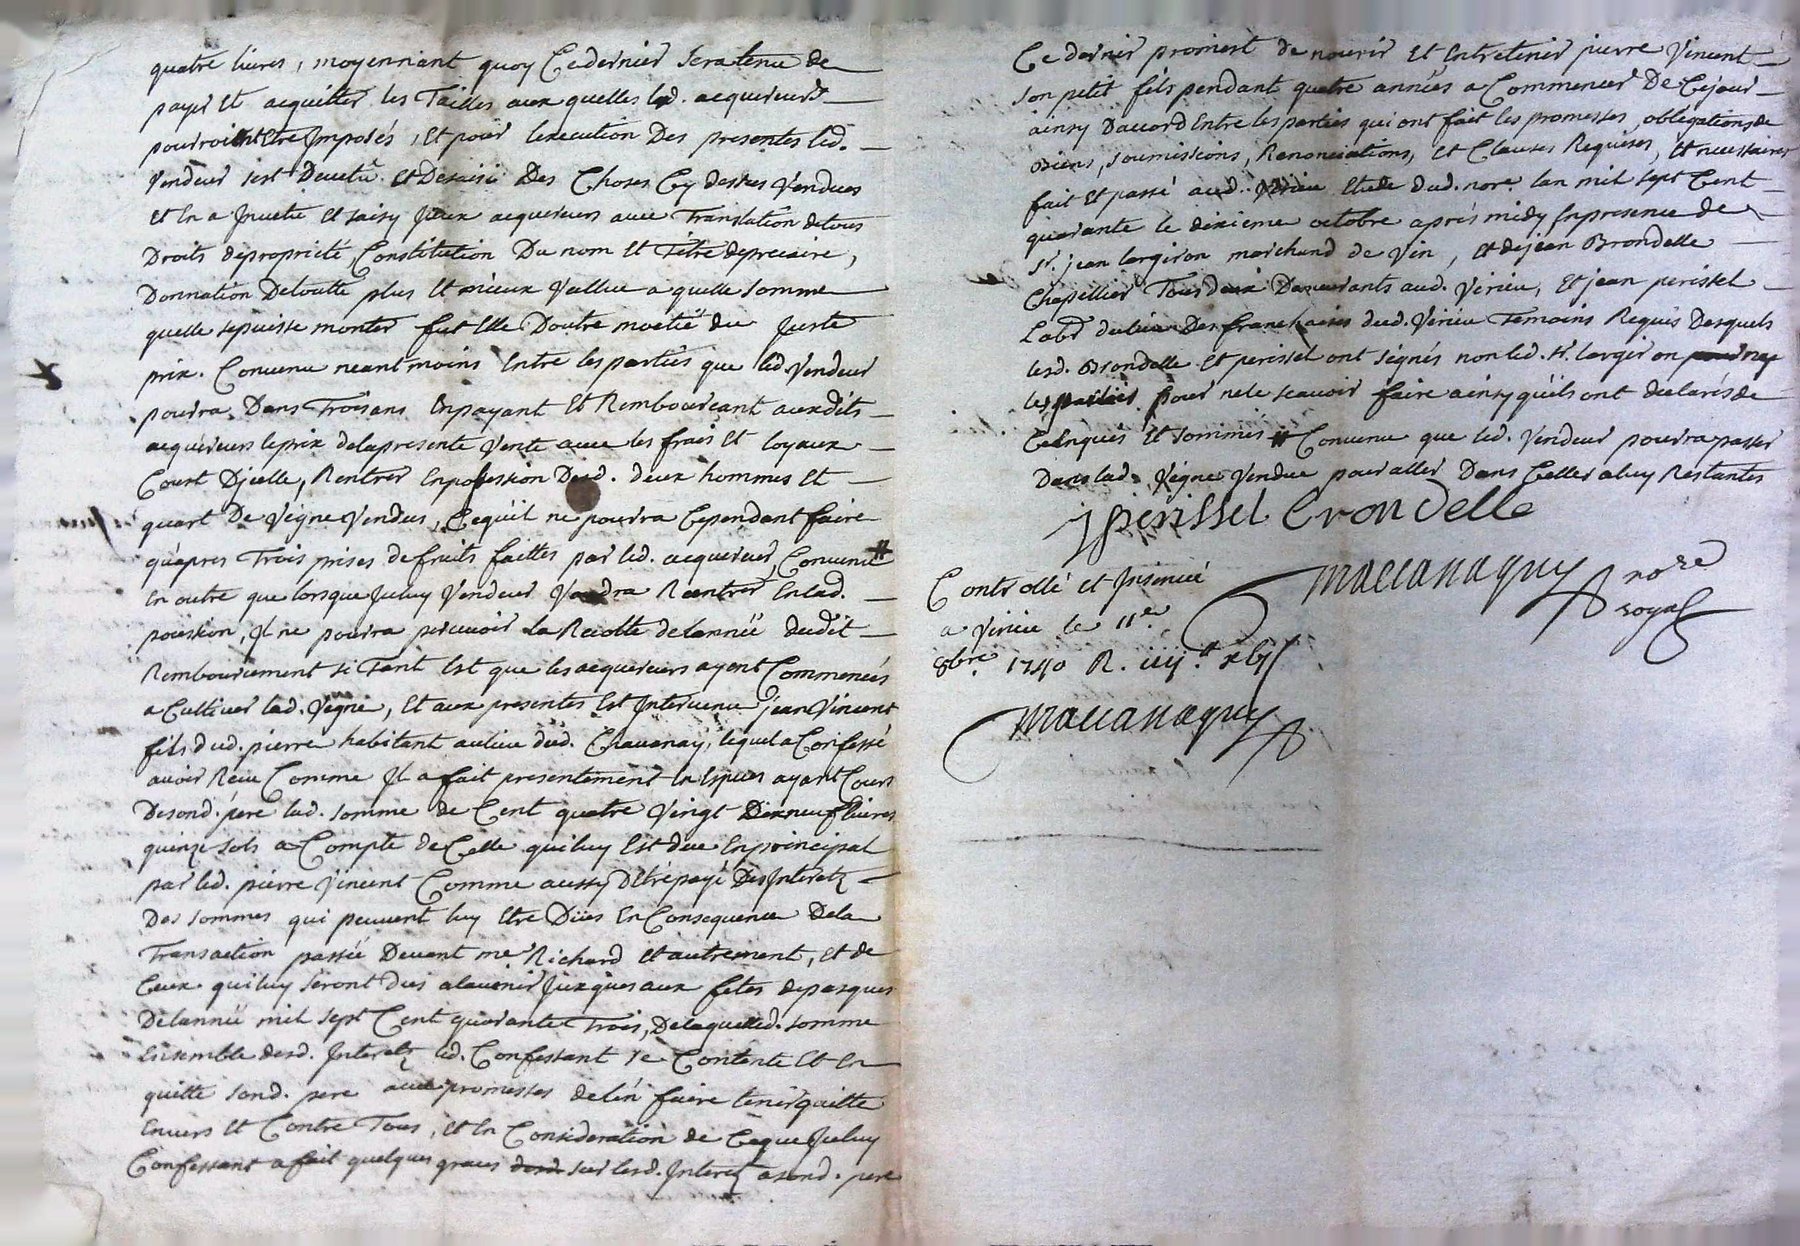 quatre livres, moyennant quoy Ce dernier sera tenu de
payer Et acquitter les Tailles aux quelles led. acquereurs
pourroint Etre Imposés, Et pour lexecution Des presentes led.
Vendeur sest Devetu Et Desaisi Des Choses Cy dessus Vendues
Et En a Investu Et saisy Iceux acquereurs avec Translation de tous
Droits de propriété, Constitution Du nom Et Titre de precaire,
Donnation De toutte plus Et mieux Vallue a quelle somme
quelle se puisse monter fut Elle Doutre moetié du Juste
prix. Convenu neantmoins Entre les parties que led. Vendeur
pourra Dans Trois ans En payant Et Rembourçant auxdits
acquereurs le prix de la presente Vente avec les frais Et loyaux
Cout D'jcelle, Rentrer En possession Desd. deux hommes Et
quart De Vigne Vendus, Ce qu'il ne pourra Cependant faire
qu'apres Trois prises de fruits faittes par led. acquereur, Convenu #
En outre que lorsque Jceluy Vendeur Voudra Rentrer En lad.
possession, Jl ne pourra percevoir La Recolte de lannéé dudit
Remboursement si Tant Est que les acquereurs ayent Commencés
a Cultiver lad. Vigne, Et aux presentes Est Intervenu jean Vincent
fils dud. pierre habitant au lieu dud. Chavanay, lequel a Confessé
avoir Receu Comme Jl a fait presentement En Especes ayant Cours
De sond. pere lad. somme de Cent quatre Vingt Dix neuf livres
quinze sols a Compte de Celle qui luy Est due En principal
par led. pierre Vincent Comme aussy D'etre payé Des Interetz
Des sommes qui peuvent luy Etre Dües En Consequence De la
Transaction passéé Devant me Richard Et autrement, Et de
Ceux qui luy seront dus a lavenir Jusques aux fetes de pasques
De lannéé mil sept Cent quarante Trois, De laquelle d. somme
Ensemble desd. Interetz led. Confessant se Contente Et En
quitte sond. pere avec promesses de l'en faire tenir quitte
Envers Et Contre Tous, Et En Consideration de Ce que Jceluy
Confessant a fait quelques graces sur lesd. Interetz a sond. pere
Ce dernier promest de nourir Et Entretenir pierre Vincent
son petit fils pendant quatre annéés a Commencer De Cejour
ainsy D'accord Entre les parties qui ont fait les promesses, obligations de
Biens, soumissions, Renonciations, Et Clauses Requises, Et necessaires
fait Et passé aud. Virieu Etude dud. nore. lan mil sept Cent
quarante le dixieme octobre aprés midy En presence de
sr. jean largiron marchand de Vin, Et de jean Brondelle
Chapellier Tous deux Demeurants aud. Virieu, Et jean perissel
Labr du lieu Des franchaises dud. Virieu Temoins Requis Desquels
lesd. Brondelle Et perissel ont signés non led. sr. largiron ny
les parties pour ne le scavoir faire ainsy qu'ils ont declarés de
Ce Enquis Et sommés # Convenu que led. Vendeur pourra passer
Dans lad. Vigne Vendue pour aller Dans Celle a luy Restantes
j perissel Brondelle
Maccanaguy nore
royal
Controllé et Insinué
a Virieu le 11e.
8bre 1740 R.
Maccanaguy